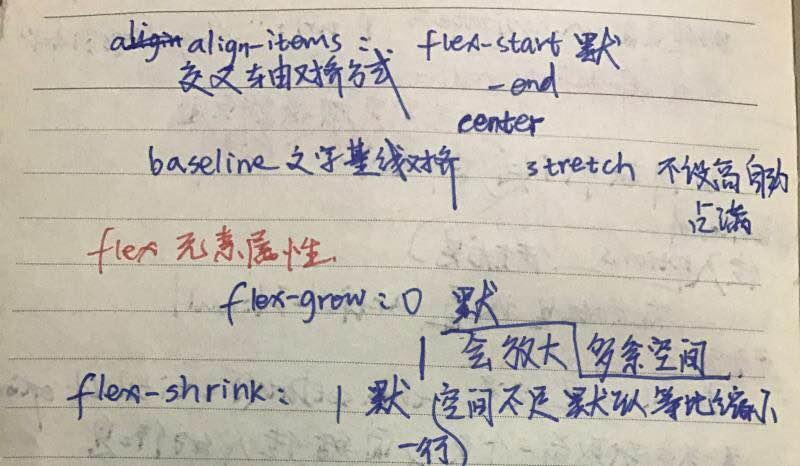 align-items: flex-start 默
交叉车由对挤方式 -end
center
baseline 文字基线对挤 stretch 不设高自动
占满
flex 元素属性
flex-grow: 0 默
1 会放大 多余空间
flex-shrink: 1 默 空间不足默认等比缩小
一行